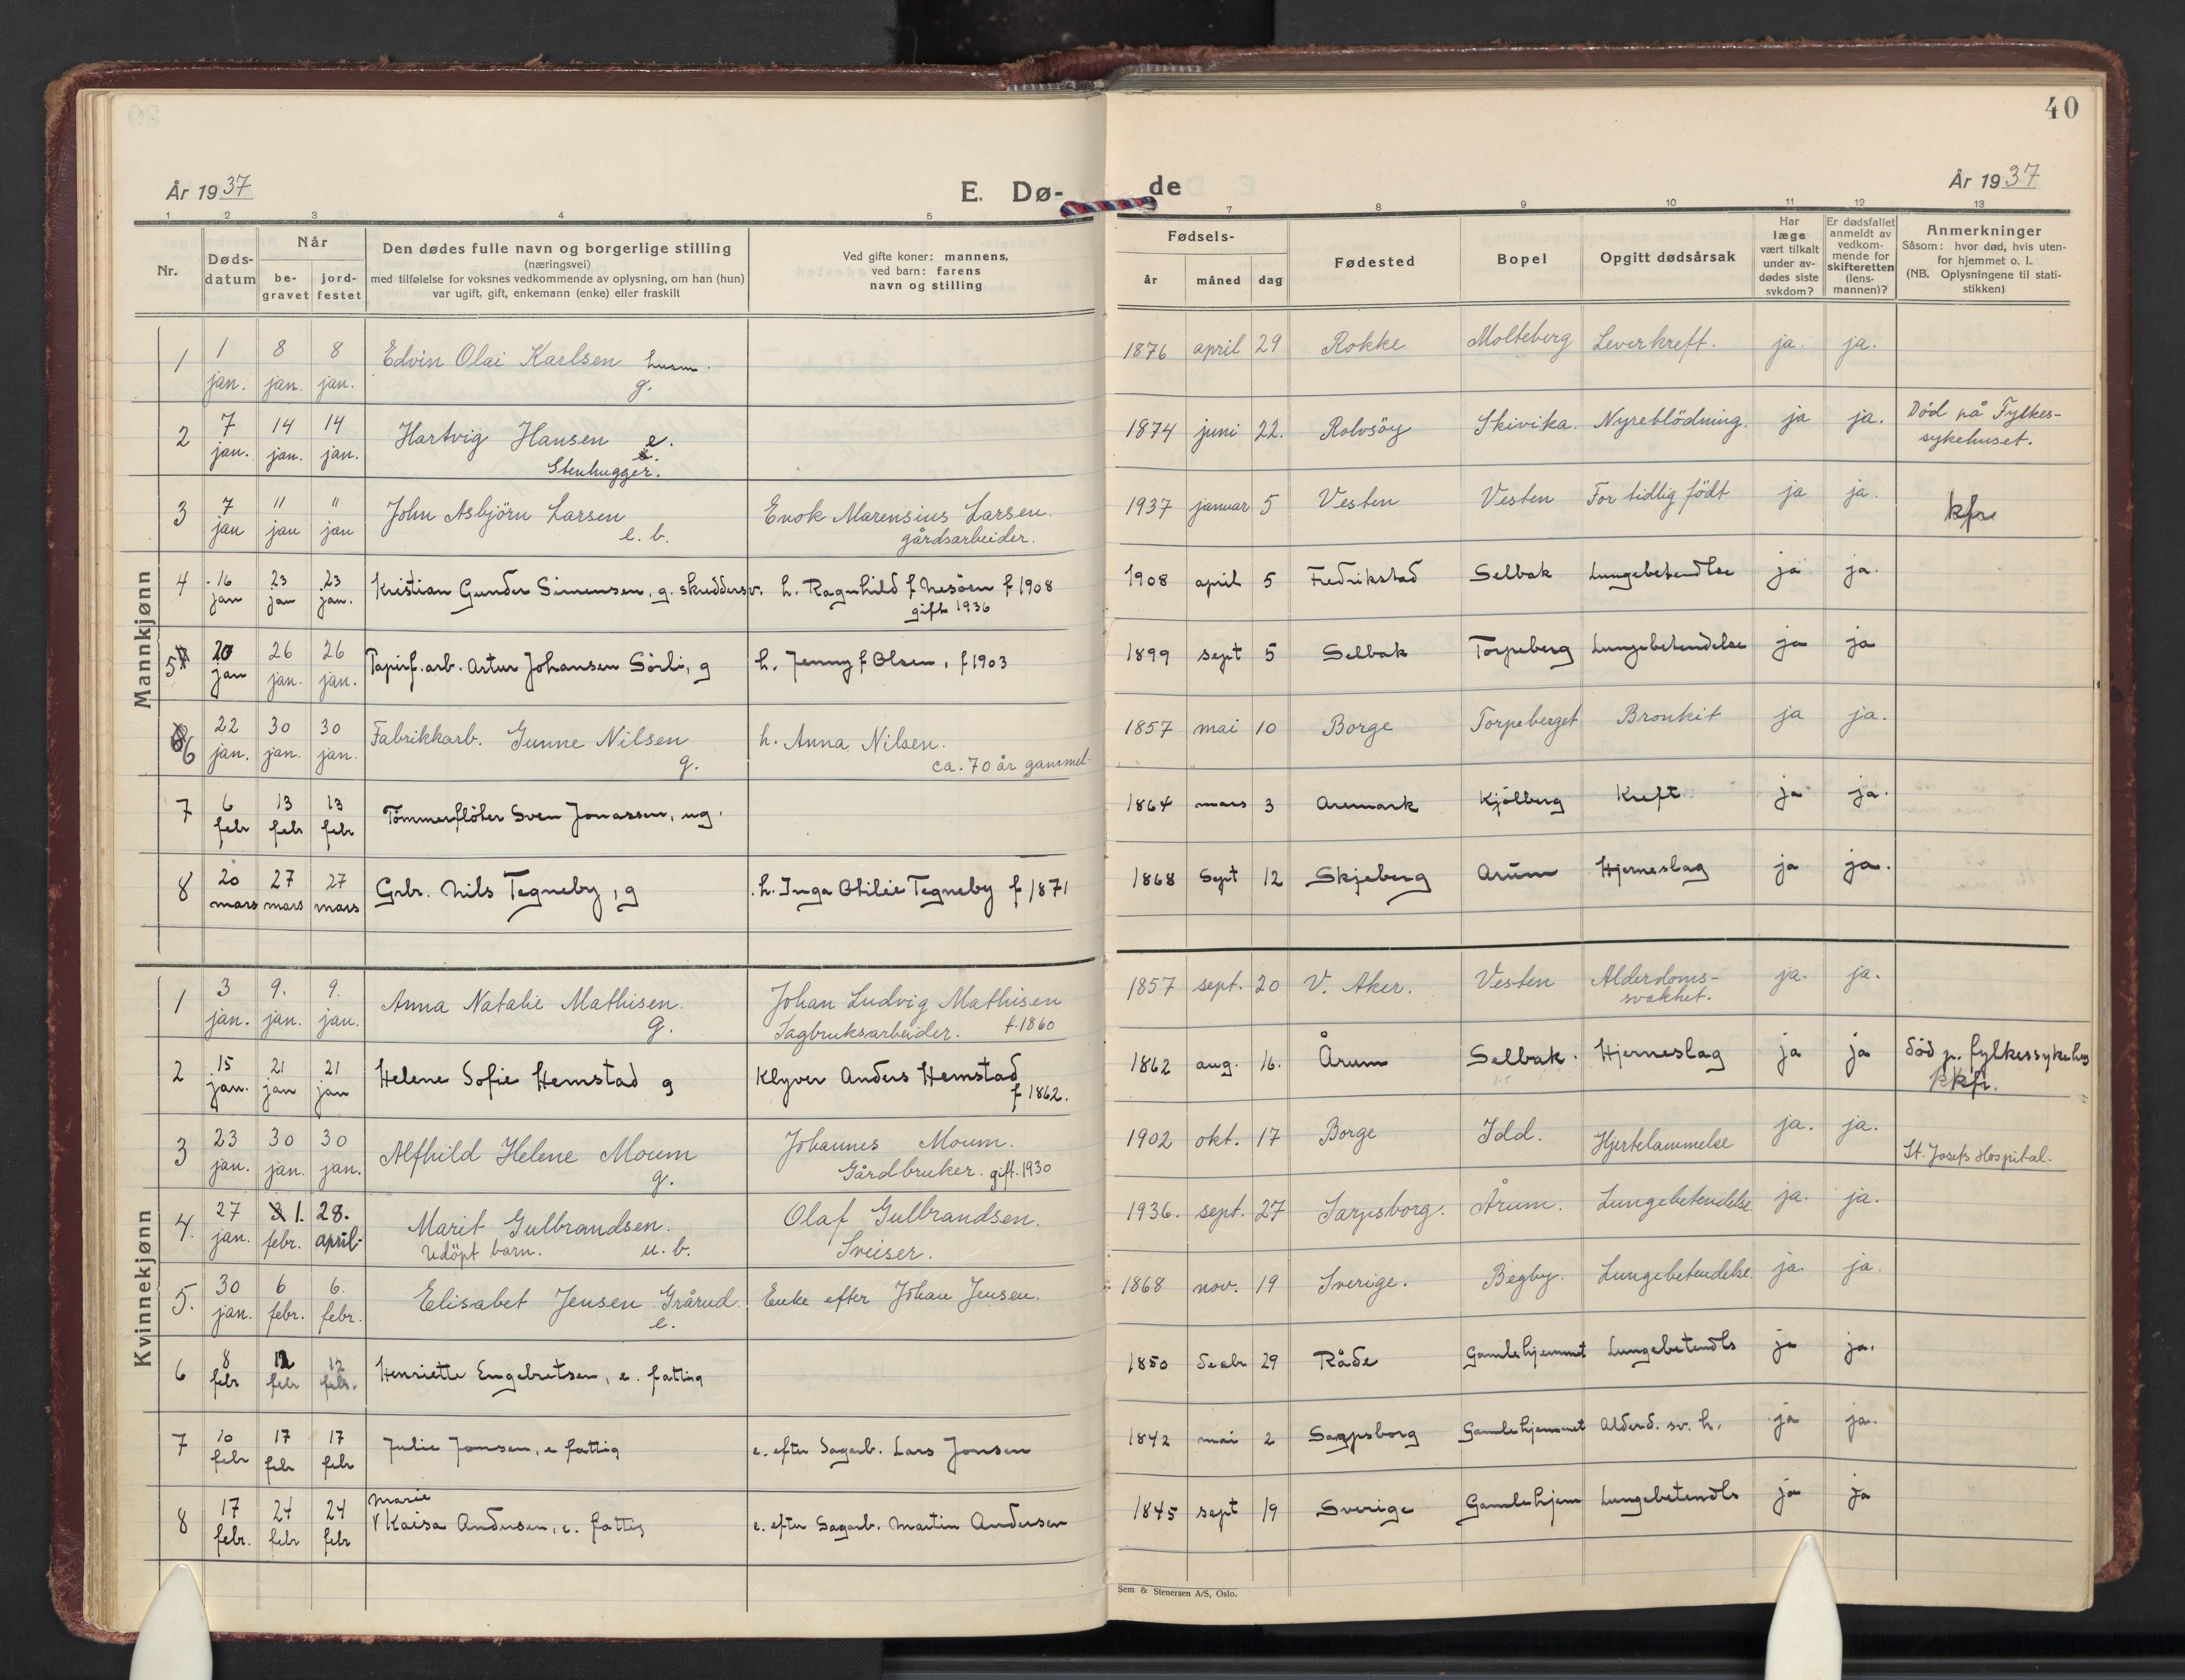 40
År 1937
E. Dø-
de
År 1937
1 2 3 4 5 7 8 9 10 11 12 13
Nr.
Døds-
datum
Når
be-
gravet
jord-
festet
Den dødes fulle navn og borgerlige stilling
(næringsvei)
med tilføielse for voksnes vedkommende av oplysning, om han (hun)
var ugift, gift, enkemann (enke) eller fraskilt
Ved gifte koner: mannens,
ved barn: farens
navn og stilling
Fødsels-
år måned dag
Fødested
Bopel
Opgitt dødsårsak
Har
læge
vært tilkalt
under av-
dødes siste
sykdom?
Er dødsfallet
anmeldt av
vedkom-
mende for
skifteretten
(lens-
mannen)?
Anmerkninger
Såsom: hvor død, hvis uten-
for hjemmet o. l.
(NB. Oplysningene til stati-
stikken)
Mannkjønn
1 1 jan. 8 jan. 8 jan. Edvin Olai Karlsen husm. g. 1876 april 29 Rokke Molteberg Leverkreft. ja. ja.
2 7 jan. 14 jan. 14 jan. Hartvig Hansen e. Stenhugger. 1874 juni 22. Rolvsöy Skivika. Nyreblödning. ja ja. Död på Fylkes-
sykehuset.
3 7 jan " jan " jan John Asbjörn Larsen e. b. Enok Marensius Larsen. gårdsarbeider. 1937 januar 5 Vesten Vesten For tidlig födt ja ja. kfr
4 16 jan 23 jan 23 jan. Kristian Gunder Simensen, g. skreddersv. h. Ragnhild f Nesöen f 1908 gift 1936 1908 april 5 Fredrikstad Selbak Lungebetendlse ja ja.
5 20 jan 26 jan. 26 jan. Papirf. arb. Artur Johansen Sörli, g h. Jenny f Olsen, f 1903 1899 sept 5 Selbak Torpeberg Lungebetendelse ja ja
6 22 jan. 30 jan. 30 jan. Fabrikkarb. Gunne Nilsen g. h. Anna Nilsen. ca. 70 år gammel. 1857 mai 10 Borge Torpeberget Bronkit ja ja.
7 6 febr 13 febr 13 febr Tömmerflöter Sven Jonassen, ug. 1864 mars 3 Aremark Kjölberg Kreft ja ja.
8 20 mars 27 mars 27 mars Grbr. Nils Tegneby, g h. Inga Otilie Tegneby f 1871 1868 Sept 12 Skjeberg Arum Hjerneslag ja ja.
Kvinnekjønn
1 3 jan. 9. jan. 9. jan. Anna Natalie Mathisen. g. Johan Ludvig Mathisen Sagbruksarbeider. f. 1860 1857 sept. 20 V. Aker. Vesten Alderdoms-
svakhet. ja. ja.
2 15 jan. 21 jan 21 jan Helene Sofie Hemstad g Klyver Anders Hemstad f 1862. 1862 aug. 16. Årum Selbak. Hjerneslag ja ja död p. fylkessykehus
kkfr.
3 23 jan. 30 jan. 30 jan. Alfhild Helene Moum g. Johannes Moum. Gårdbruker. gift. 1930 1902 okt. 17 Borge Idd. Hjertelammelse ja. ja. St. Josefs Hospital.
4. 27 jan. 1. febr. 28. april Marit Gulbrandsen. Udöpt barn. u. b. Olaf Gulbrandsen. Sveiser. 1936. sept. 27 Sarpsborg. Årum. Lungebetendelse. ja. ja.
5. 30 jan. 6 febr. 6. febr. Elisabet Jensen Grårud. e. Enke efter Johan Jensen. 1868 nov. 19 Sverige. Begby. Lungebetendelse. ja. ja.
6 8 febr 12 febr 12 febr. Henriette Engebretsen, e. fattig 1850 decbr 29 Råde Gamlehjemmet Lungebetendls ja ja.
7 10 febr 17 febr 17 febr Julie Jonsen, e fattig e. efter Sagarb. Lars Jonsen 1842 mai 2 Sarpsborg Gamlehjemmet Alderd. sv. h. ja ja.
8 17 febr. 24 febr 24 febr Marie
Kaisa Andersen, e. fattig e. efter Sagarb. Martin Andersen 1845 sept 19 Sverige Gamlehjem Lungebetendls ja ja
Sem & Stenersen A/S, Oslo.